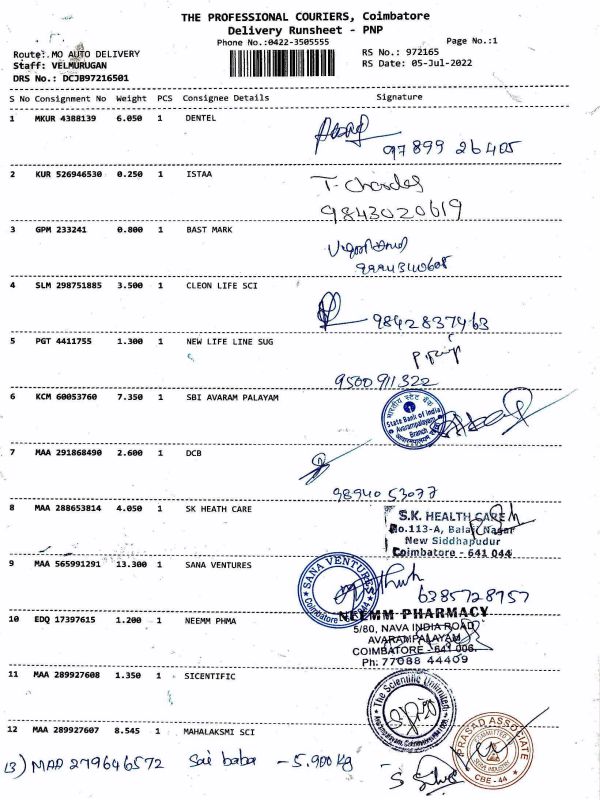 THE PROFESSIONAL COURIERS, Coimbatore
Delivery Runsheet - PNP
Phone No.:0422-3505555
Page No.:1
Route: MO AUTO DELIVERY
RS No.: 972165
Staff: VELMURUGAN
RS Date: 05-Jul-2022
DRS No.: DCJB97216501
S No Consignment No Weight PCS Consignee Details Signature
1 MKUR 4388139 6.050 1 DENTEL
97899 26405
2 KUR 526946530 0.250 1 ISTAA
9843020619
3 GPM 233241 0.800 1 BAST MARK
4 SLM 298751885 3.500 1 CLEON LIFE SCI
9842837463
5 PGT 4411755 1.300 1 NEW LIFE LINE SUG
9500911322
6 KCM 60053760 7.350 1 SBI AVARAM PALAYAM
भारतीय स्टेट बैंक
State Bank of India
Avarampalayam
Branch
7 MAA 291868490 2.600 1 DCB
98940 53077
8 MAA 288653814 4.050 1 SK HEATH CARE
S.K. HEALTH CARE
No.113-A, Balaji Nagar
New Siddhapudur
Coimbatore - 641 044
9 MAA 565991291 13.300 1 SANA VENTURES
SANA VENTURES
Coimbatore
6385728957
10 EDQ 17397615 1.200 1 NEEMM PHMA
NEEMM PHARMACY
5/80, NAVA INDIA ROAD
AVARAMPALAYAM
COIMBATORE - 641 006.
Ph: 77088 44409
11 MAA 289927608 1.350 1 SICENTIFIC
The Scientific Unlimited
12 MAA 289927607 8.545 1 MAHALAKSMI SCI
PRASAD ASSOCIATE
CBE - 44
13) MAA 279646572 Sai baba - 5.900 kg